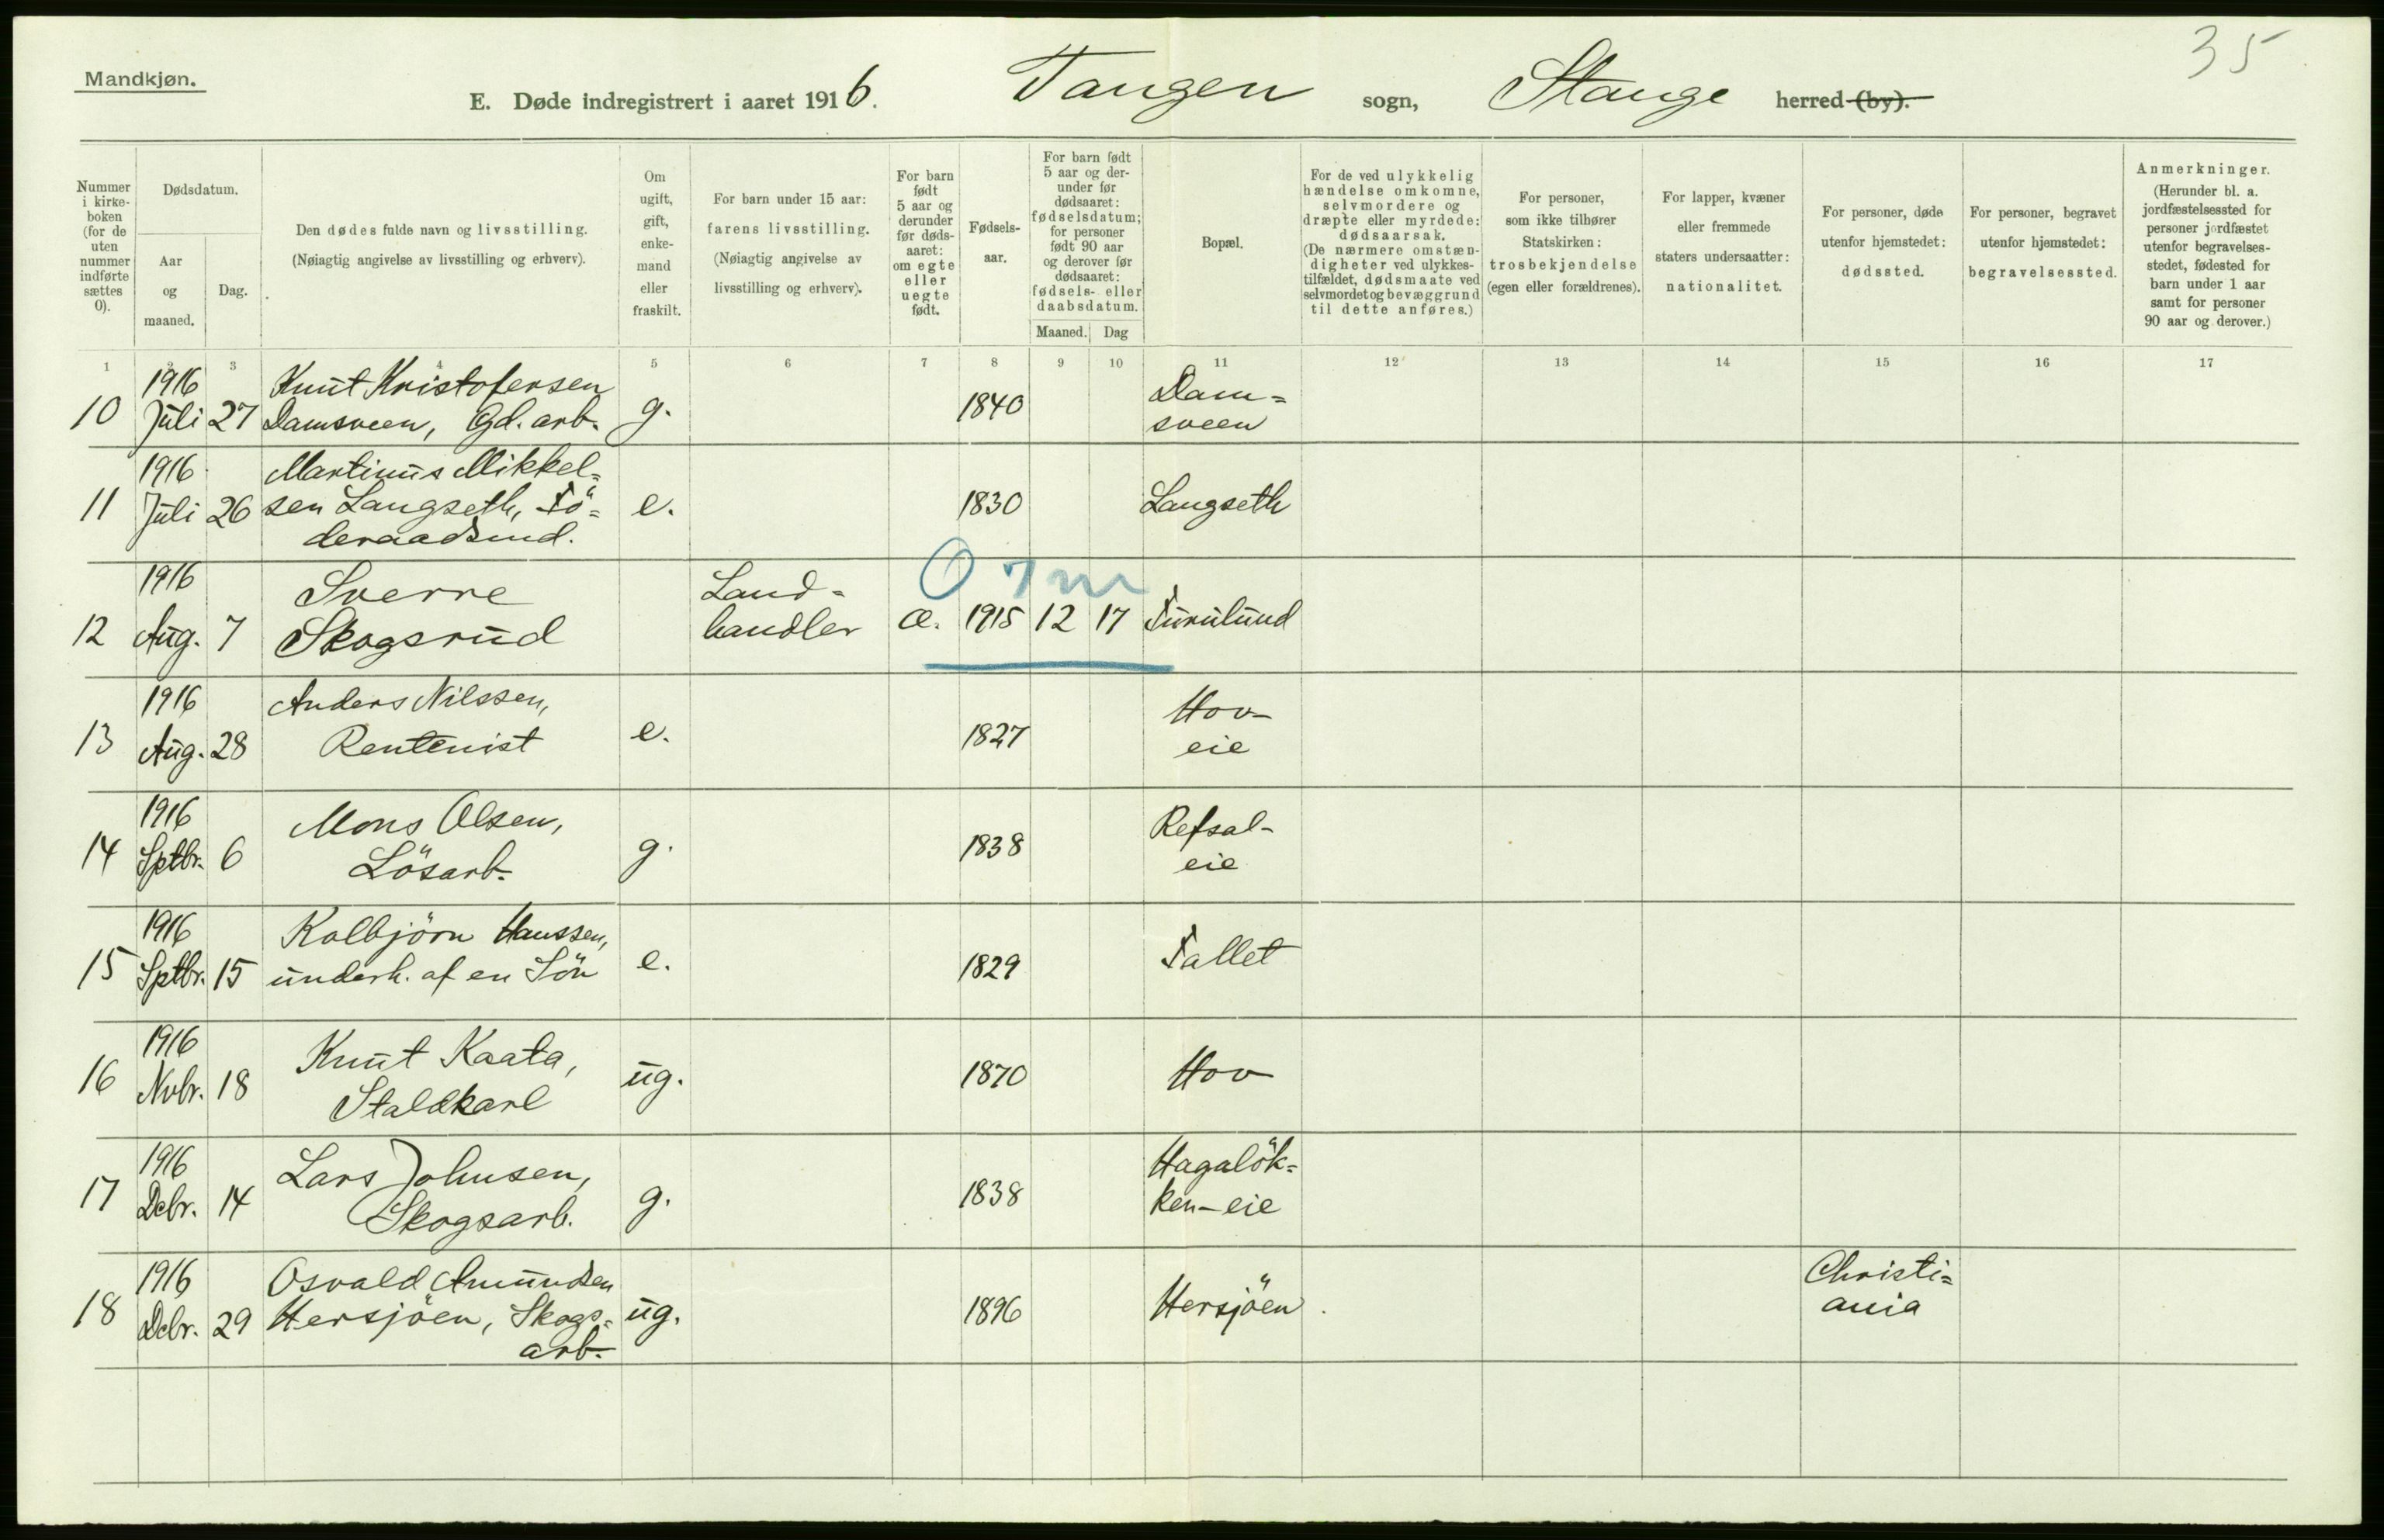 35
Mandkjøn.
E. Døde indregistrert i aaret 1916. Tangen sogn, Stange herred (by).
Nummer
i kirke-
boken
(for de
uten
nummer
indførte
sættes
0).
Dødsdatum.
Aar
og
maaned.
Dag.
Den dødes fulde navn og livsstilling.
(Nøiagtig angivelse av livsstilling og erhverv).
Om
ugift,
gift,
enke-
mand
eller
fraskilt.
For barn under 15 aar:
farens livsstilling.
(Nøiagtig angivelse av
livsstilling og erhverv).
For barn
født
5 aar og
derunder
før døds-
aaret:
om egte
eller
uegte
født.
Fødsels-
aar.
For barn født
5 aar og der-
under før
dødsaaret:
fødselsdatum;
for personer
født 90 aar
og derover før
dødsaaret:
fødsels- eller
daabsdatum.
Maaned. Dag
Bopæl.
For de ved ulykkelig
hændelse omkomne,
selvmordere og
dræpte eller myrdede:
dødsaarsak.
(De nærmere omstæn-
digheter ved ulykkes-
tilfældet, dødsmaate ved
selvmordet og bevæggrund
til dette anføres.)
For personer,
som ikke tilhører
Statskirken:
trosbekjendelse
(egen eller forældrenes).
For lapper, kvæner
eller fremmede
staters undersaatter:
nationalitet.
For personer, døde
utenfor hjemstedet:
dødssted.
For personer, begravet
utenfor hjemstedet:
begravelsessted.
Anmerkninger.
(Herunder bl. a.
jordfæstelsessted for
personer jordfæstet
utenfor begravelses-
stedet, fødested for
barn under 1 aar
samt for personer
90 aar og derover.)
1 2 3 4 5 6 7 8 9 10 11 12 13 14 15 16 17
1916 Knut Kristofersen Dam=
10 Juli 27 Damsveen, Gd. arb. g. 1840 sveen
1916 Martinus Mikkel=
11 Juli 26 sen Langseth, Fö= e. 1830 Langseth
deraadsmd.
0 7 m
1916 Sverre Land-
12 Aug. 7 Skogsrud handler e. 1915 12 17 Furulund
1916 Anders Nilssen, Hov-
13 Aug. 28 Rentenist e. 1827 eie
1916 Mons Olsen, Refsal-
14 Sptbr. 6 Lösarb. g. 1838 eie
1916 Kolbjörn Hanssen,
15 Sptbr. 15 underh. af en Sön e. 1829 Fallet
1916 Knut Kaata,
16 Nvbr. 18 Staldkarl ug. 1870 Hov
1916 Lars Johnsen, Hagalök=
17 Dcbr. 14 Skogsarb. g. 1838 ken-eie
1916 Osvald Amundsen Christi=
18 Dcbr. 29 Hersjöen, Skogs= ug. 1896 Hersjöen. ania
arb.